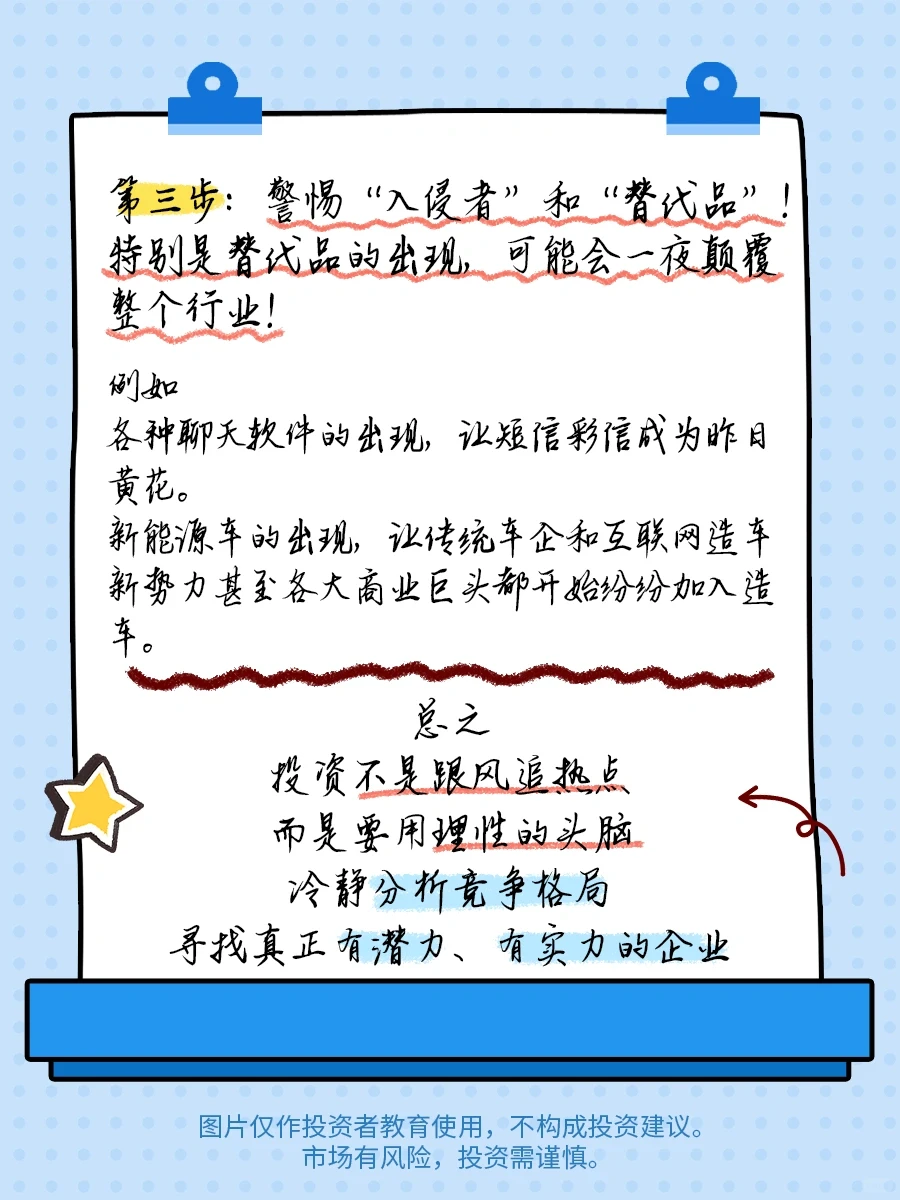 第三步：警惕“入侵者”和“替代品”！
特别是替代品的出现，可能会一夜颠覆
整个行业！
例如
各种聊天软件的出现，让短信彩信成为昨日
黄花。
新能源车的出现，让传统车企和互联网造车
新势力甚至各大商业巨头都开始纷纷加入造
车。
总之
投资不是跟风追热点
而是要用理性的头脑
冷静分析竞争格局
寻找真正有潜力、有实力的企业
图片仅作投资者教育使用，不构成投资建议。
市场有风险，投资需谨慎。